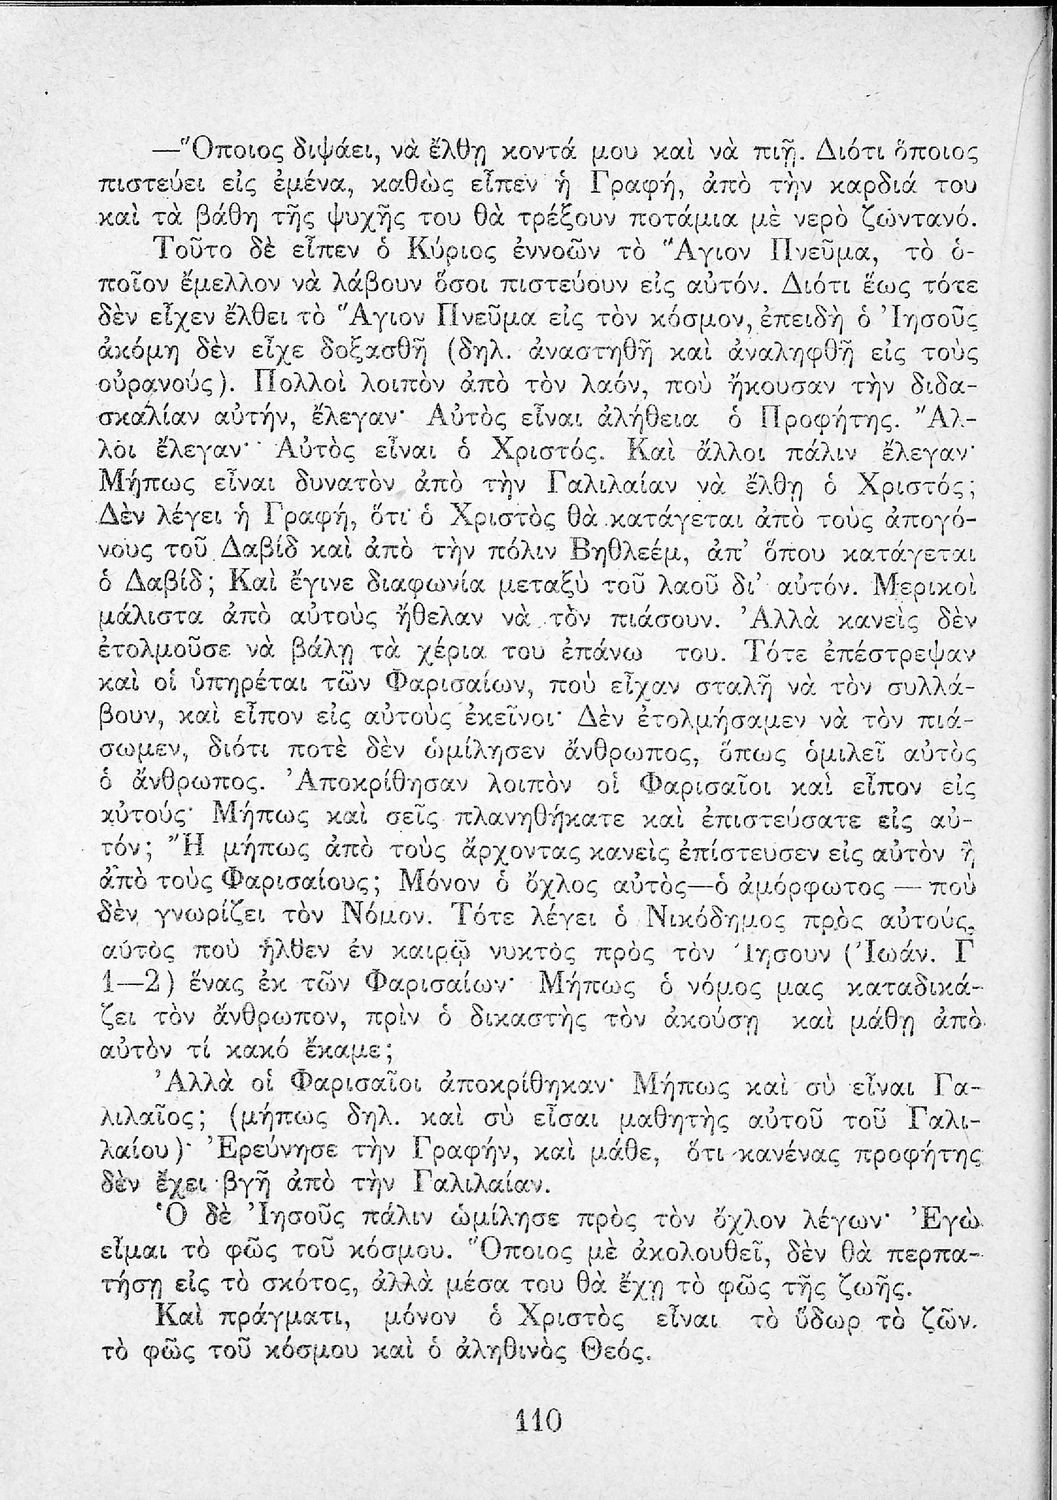 —Ὅποιος διψάει, νὰ ἔλθῃ κοντά μου καὶ νὰ πιῇ. Διότι ὅποιος
πιστεύει εἰς ἐμένα, καθὼς εἶπεν ἡ Γραφή, ἀπὸ τὴν καρδιά του
καὶ τὰ βάθη τῆς ψυχῆς του θὰ τρέξουν ποτάμια μὲ νερὸ ζωντανό.
Τοῦτο δὲ εἶπεν ὁ Κύριος ἐννοῶν τὸ Ἅγιον Πνεῦμα, τὸ ὁ-
ποῖον ἔμελλον νὰ λάβουν ὅσοι πιστεύουν εἰς αὐτόν. Διότι ἕως τότε
δὲν εἶχεν ἔλθει τὸ Ἅγιον Πνεῦμα εἰς τὸν κόσμον, ἐπειδὴ ὁ Ἰησοῦς
ἀκόμη δὲν εἶχε δοξασθῆ (δηλ. ἀναστηθῆ καὶ ἀναληφθῆ εἰς τοὺς
οὐρανούς). Πολλοὶ λοιπὸν ἀπὸ τὸν λαόν, ποὺ ἤκουσαν τὴν διδα-
σκαλίαν αὐτήν, ἔλεγαν· Αὐτὸς εἶναι ἀλήθεια ὁ Προφήτης. Ἄλ-
λοι ἔλεγαν· Αὐτὸς εἶναι ὁ Χριστός. Καὶ ἄλλοι πάλιν ἔλεγαν·
Μήπως εἶναι δυνατὸν ἀπὸ τὴν Γαλιλαίαν νὰ ἔλθῃ ὁ Χριστός;
Δὲν λέγει ἡ Γραφή, ὅτι ὁ Χριστὸς θὰ κατάγεται ἀπὸ τοὺς ἀπογό-
νους τοῦ Δαβὶδ καὶ ἀπὸ τὴν πόλιν Βηθλεέμ, ἀπ' ὅπου κατάγεται
ὁ Δαβίδ; Καὶ ἔγινε διαφωνία μεταξὺ τοῦ λαοῦ δι' αὐτόν. Μερικοὶ
μάλιστα ἀπὸ αὐτοὺς ἤθελαν νὰ τὸν πιάσουν. Ἀλλὰ κανεὶς δὲν
ἐτολμοῦσε νὰ βάλῃ τὰ χέρια του ἐπάνω του. Τότε ἐπέστρεψαν
καὶ οἱ ὑπηρέται τῶν Φαρισαίων, ποὺ εἶχαν σταλῆ νὰ τὸν συλλά-
βουν, καὶ εἶπον εἰς αὐτοὺς ἐκεῖνοι· Δὲν ἐτολμήσαμεν νὰ τὸν πιά-
σωμεν, διότι ποτὲ δὲν ὡμίλησεν ἄνθρωπος, ὅπως ὁμιλεῖ αὐτὸς
ὁ ἄνθρωπος. Ἀποκρίθησαν λοιπὸν οἱ Φαρισαῖοι καὶ εἶπον εἰς
αὐτούς· Μήπως καὶ σεῖς πλανηθήκατε καὶ ἐπιστεύσατε εἰς αὐ-
τόν; Ἢ μήπως ἀπὸ τοὺς ἄρχοντας κανεὶς ἐπίστευσεν εἰς αὐτὸν ἢ
ἀπὸ τοὺς Φαρισαίους; Μόνον ὁ ὄχλος αὐτὸς—ὁ ἀμόρφωτος — ποὺ
δὲν γνωρίζει τὸν Νόμον. Τότε λέγει ὁ Νικόδημος πρὸς αὐτούς,
αὐτὸς ποὺ ἦλθεν ἐν καιρῷ νυκτὸς πρὸς τὸν Ἰησουν (Ἰωάν. Γ
1—2) ἕνας ἐκ τῶν Φαρισαίων· Μήπως ὁ νόμος μας καταδικά-
ζει τὸν ἄνθρωπον, πρὶν ὁ δικαστὴς τὸν ἀκούσῃ καὶ μάθῃ ἀπὸ
αὐτὸν τί κακό ἔκαμε;
Ἀλλὰ οἱ Φαρισαῖοι ἀποκρίθηκαν· Μήπως καὶ σὺ εἶναι Γα-
λιλαῖος; (μήπως δηλ. καὶ σὺ εἶσαι μαθητὴς αὐτοῦ τοῦ Γαλι-
λαίου)· Ἐρεύνησε τὴν Γραφήν, καὶ μάθε, ὅτι κανένας προφήτης
δὲν ἔχει βγῆ ἀπὸ τὴν Γαλιλαίαν.
Ὁ δὲ Ἰησοῦς πάλιν ὡμίλησε πρὸς τὸν ὄχλον λέγων· Ἐγὼ
εἶμαι τὸ φῶς τοῦ κόσμου. Ὅποιος μὲ ἀκολουθεῖ, δὲν θὰ περπα-
τήσῃ εἰς τὸ σκότος, ἀλλὰ μέσα του θὰ ἔχῃ τὸ φῶς τῆς ζωῆς.
Καὶ πράγματι, μόνον ὁ Χριστὸς εἶναι τὸ ὕδωρ τὸ ζῶν.
τὸ φῶς τοῦ κόσμου καὶ ὁ ἀληθινὸς Θεός.
110